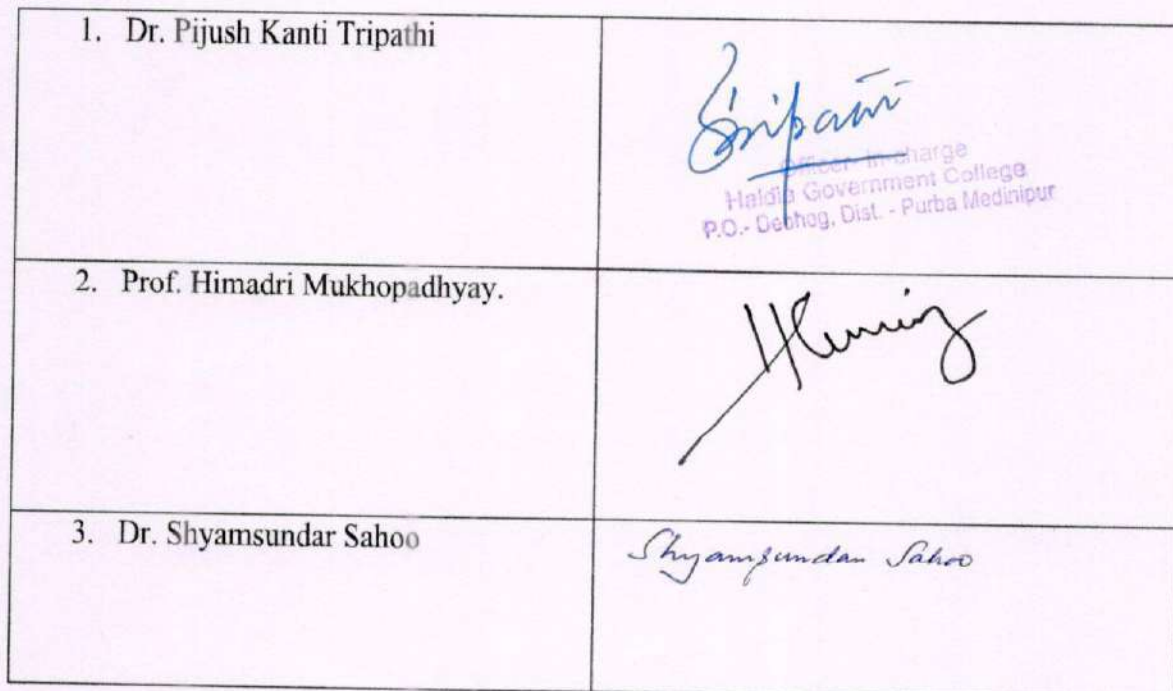 1. Dr. Pijush Kanti Tripathi
Officer- In-charge
Haldia Government College
P.O.- Debhog, Dist. - Purba Medinipur
2. Prof. Himadri Mukhopadhyay.
3. Dr. Shyamsundar Sahoo
Shyamsundar Sahoo